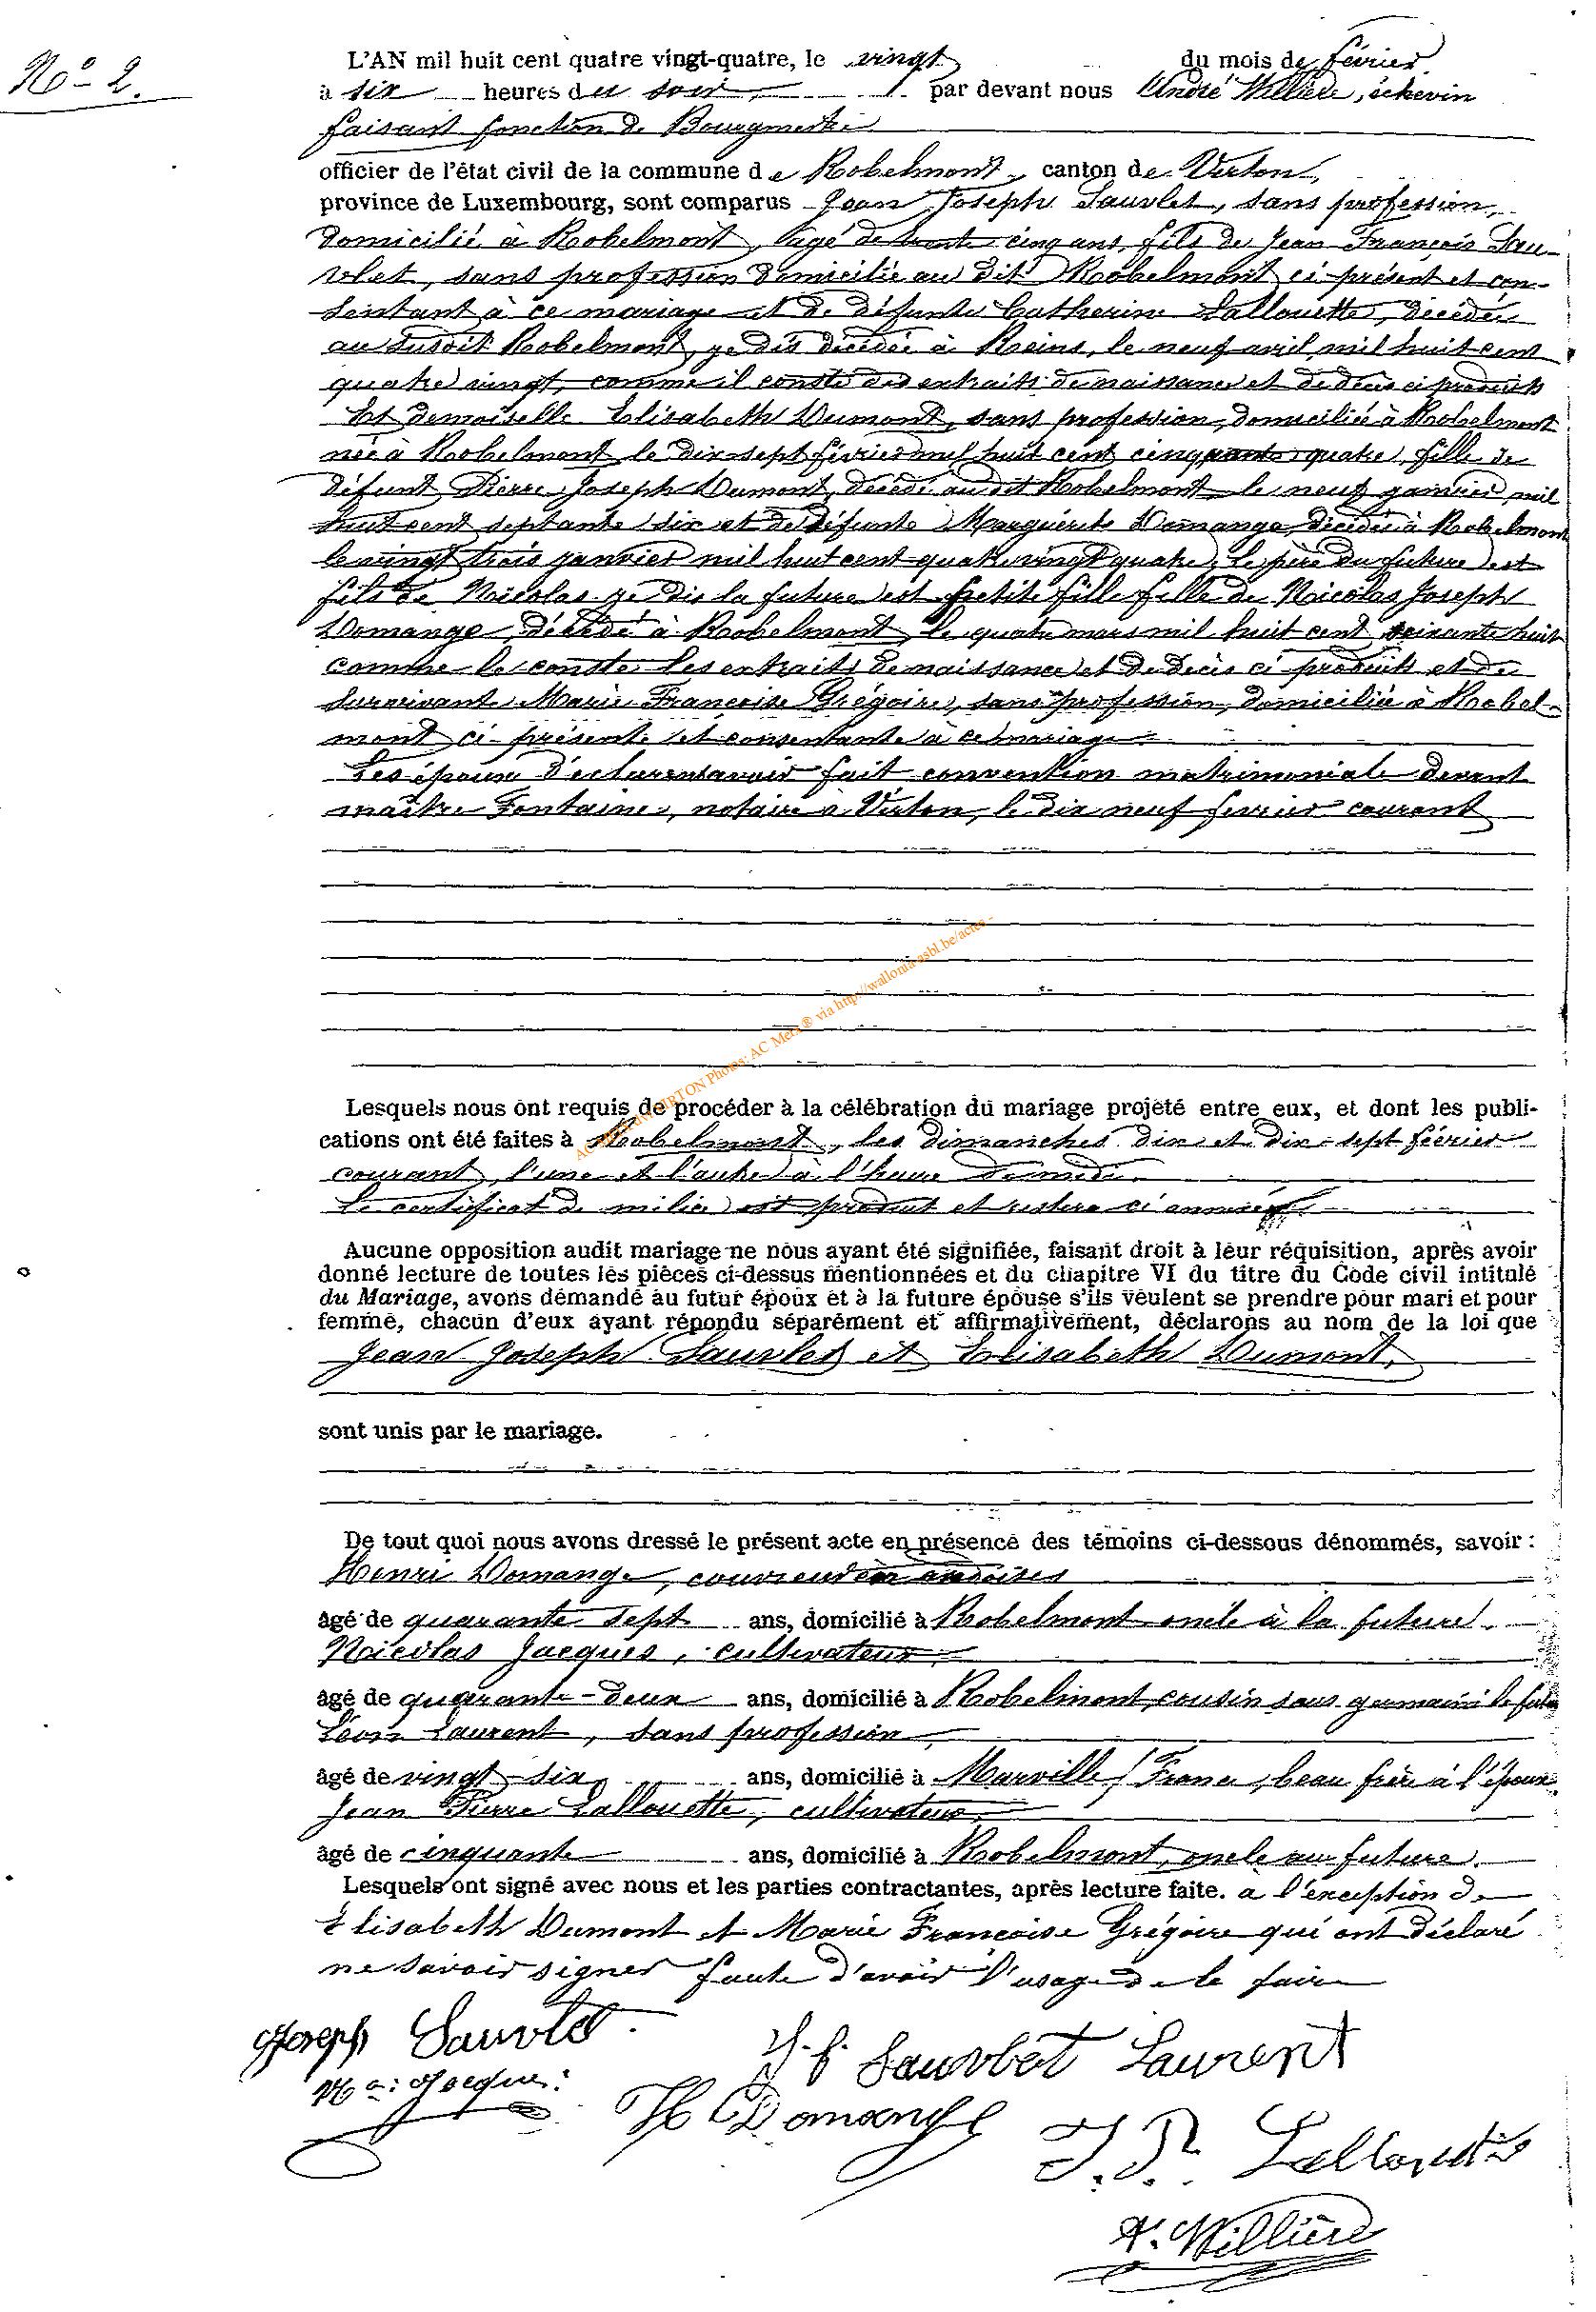 No 2.
L'AN mil huit cent quatre vingt-quatre, le vingt du mois de février
à six heures du soir, par devant nous André Willière, échevin
faisant fonction de Bourgmestre
officier de l'état civil de la commune de Robelmont, canton de Virton,
province de Luxembourg, sont comparus Jean Joseph Sauvlet, sans profession,
domicilié à Robelmont, âgé de trente cinq ans, fils de Jean François Sau-
vlet, sans profession domicilié au dit Robelmont ci présent et con-
sentant à ce mariage et de défunte Catherine Lallouette, décédée
au susdit Robelmont, je dis décédée à Reins, le neuf avril mil huit cent
quatre vingt, comme il conste des extraits de naissance et de décès ci produits
Et demoiselle Elisabeth Dumont, sans profession, domiciliée à Robelmont
née à Robelmont le dix-sept février mil huit cent cinquante quatre, fille de
défunt Pierre Joseph Dumont, décédé au dit Robelmont le neuf janvier mil
huit cent septante six et de défunte Marguérite Domange, décédée à Robelmont
le vingt trois janvier mil huit cent quatre vingt quatre, le père du future est
fils de Nicolas je dis la future est petite fille fille de Nicolas Joseph
Domange, décédé à Robelmont, le quatre mars mil huit cent soixante huit
comme le conste les extraits de naissance et de décès ci produits et de
survivante Marie Françoise Grégoire, sans profession, domiciliée à Robel-
mont ci présente et consentante à ce mariage.
Les époux déclarent avoir fait convention matrimoniale devant
maître Fontaine, notaire à Virton, le dix neuf fevrier courant
Lesquels nous ont requis de procéder à la célébration du mariage projeté entre eux, et dont les publi-
cations ont été faites à Robelmont, les dimanches dix et dix-sept février
courant, l'une et l'autre à l'heure de midi.
Le certificat de milice est produit et restera ci annéxé
Aucune opposition audit mariage ne nous ayant été signifiée, faisant droit à leur réquisition, après avoir
donné lecture de toutes les pièces ci-dessus mentionnées et du chapitre VI du titre du Code civil intitulé
du Mariage, avons demandé au futur époux et à la future épouse s'ils veulent se prendre pour mari et pour
femme, chacun d'eux ayant répondu séparément et affirmativement, déclarons au nom de la loi que
Jean Joseph Sauvlet et Elisabeth Dumont,
sont unis par le mariage.
De tout quoi nous avons dressé le présent acte en présence des témoins ci-dessous dénommés, savoir :
Henri Domange, couvreur en ardoises
âgé de quarante sept ans, domicilié à Robelmont oncle à la future.
Nicolas Jacques, cultivateur,
âgé de quarante-deux ans, domicilié à Robelmont, cousin sous germain
Léon Laurent, sans profession
âgé de vingt-six ans, domicilié à Marville, France, beau frère à l'époux
Jean Pierre Lallouette, cultivateur,
âgé de cinquante ans, domicilié à Robelmont, oncle au future.
Lesquels ont signé avec nous et les parties contractantes, après lecture faite. a l'exception de
Elisabeth Dumont et Marie Françoise Grégoire qui ont déclaré
ne savoir signer faute d'avoir l'usage de le faire
Joseph Sauvlet
J. f. Sauvlet Laurent
Jacques
H Domange
J. P. Lallouette
A. Willière
AC Metz ® via http://wallonia-asbl.be/actes -